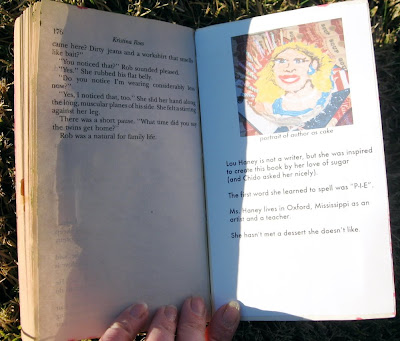 176
Kristina Ross
came here? Dirty jeans and a workshirt that smells
like bait?"
"You noticed that?" Rob sounded pleased.
"Yes." She rubbed his flat belly.
"Do you notice I'm wearing considerably less
now?"
"Yes, I noticed that, too." She did her hand along
the long, muscular planes of his side. She felt a stirring
against her leg.
There was a short pause. "What time did you say
the twins get home?"
Rob was a natural for family life.
portrait of author as cake
Lou Haney is not a writer, but she was inspired
to create this book by her love of sugar
(and Chido asked her nicely).
The first word she learned to spell was "P-I-E".
Ms. Haney lives in Oxford, Mississippi as an
artist and a teacher.
She hasn't met a dessert she doesn't like.